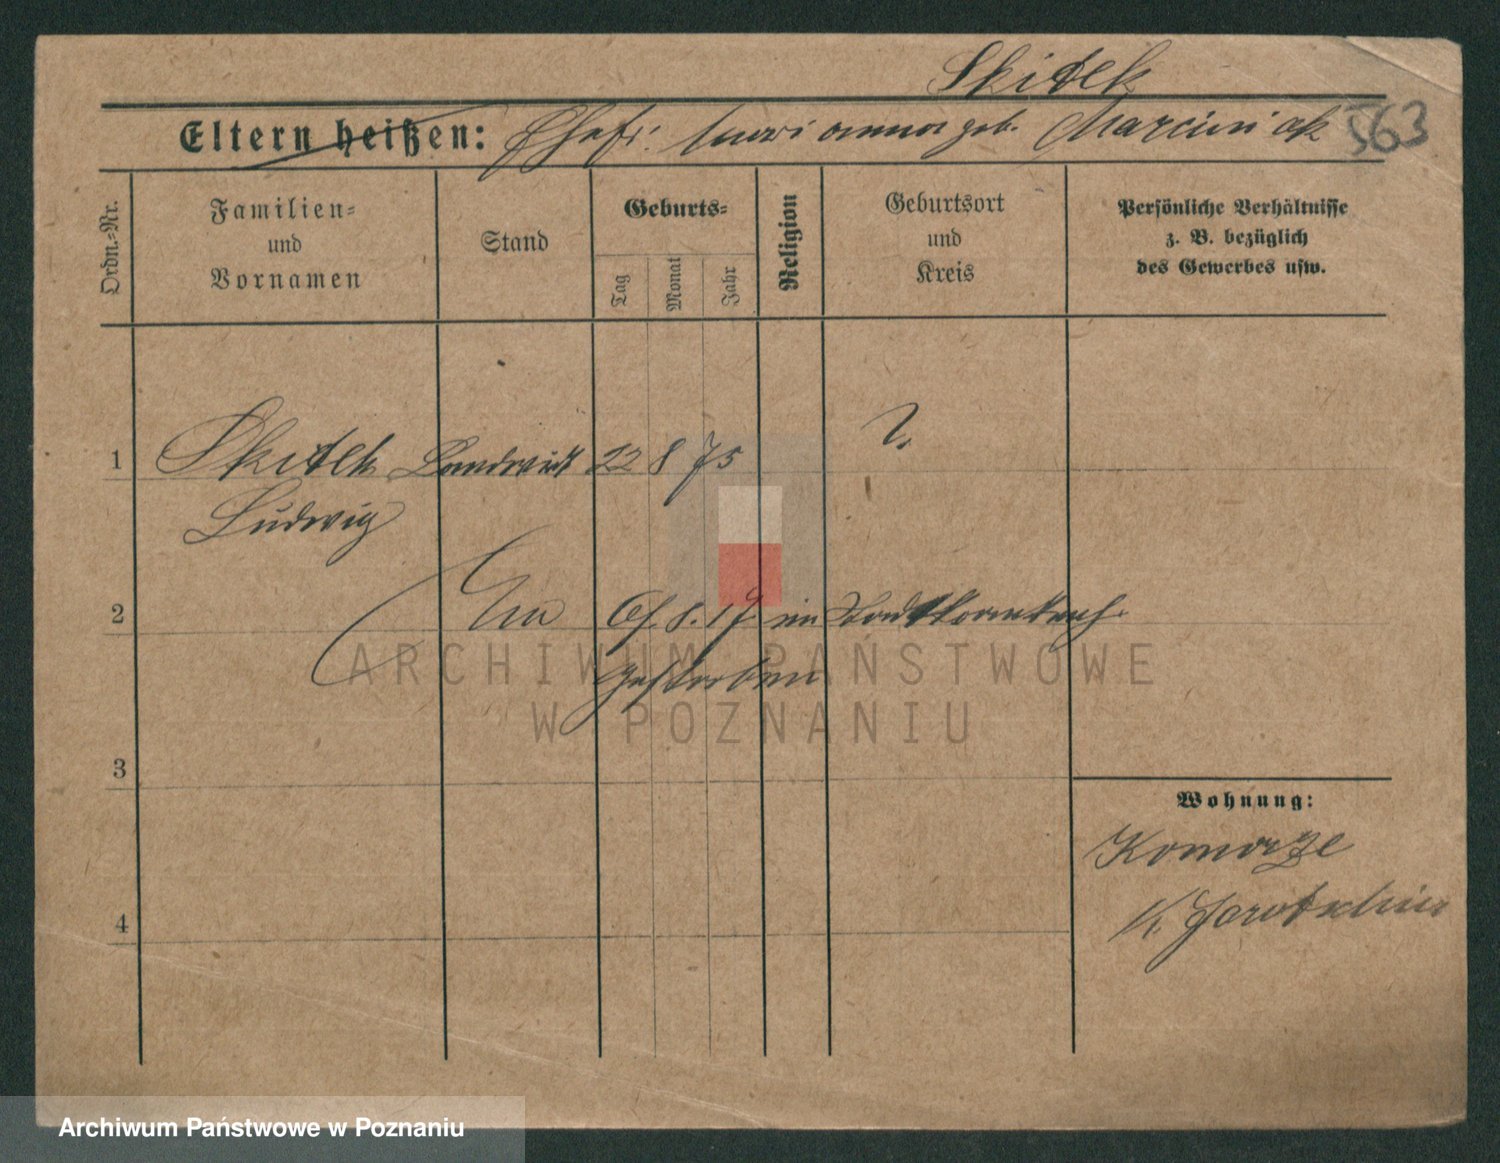 Skitek
Eltern heißen: Ehefr. Marianna geb. Marciniak
563
Ordn.-Nr.
Familien-
und
Vornamen
Stand
Geburts-
Tag
Monat
Jahr
Religion
Geburtsort
und
Kreis
Persönliche Verhältnisse
z. B. bezüglich
des Gewerbes usw.
1 Skitek Landwirt 22 8 75 ?
Ludwig
2 8. 17 im Stadtkrankenh.
gestorben
3
Wohnung:
Komorze
K. Jarotschin
4
ARCHIWUM PAŃSTWOWE
W POZNANIU
Archiwum Państwowe w Poznaniu